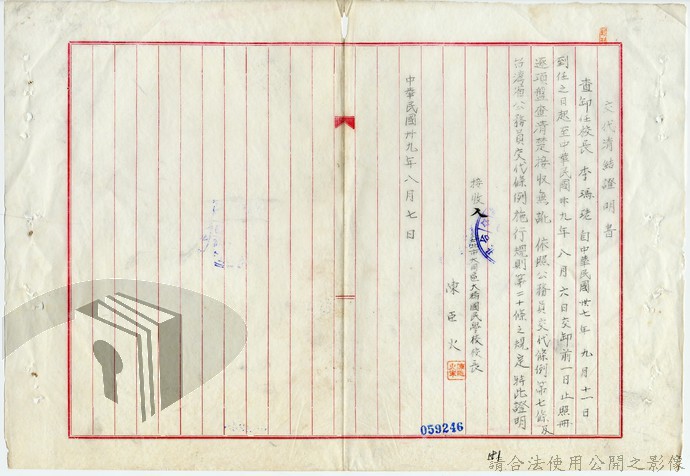 交代清結證明書
查卸任校長 李 自中華民國卅七年 九月十一日
到任之日起至中華民國卅九年 八月六日交卸前一日止照冊
逐項盤查清楚接收無訛 依照公務員交代條例第七條及
台灣省公務員交代條例施行規則第二十條之規定 特此證明
接收人
大橋國民學校校長
陳 火
中華民國卅九年八月七日
059246
請合法使用公開之影像